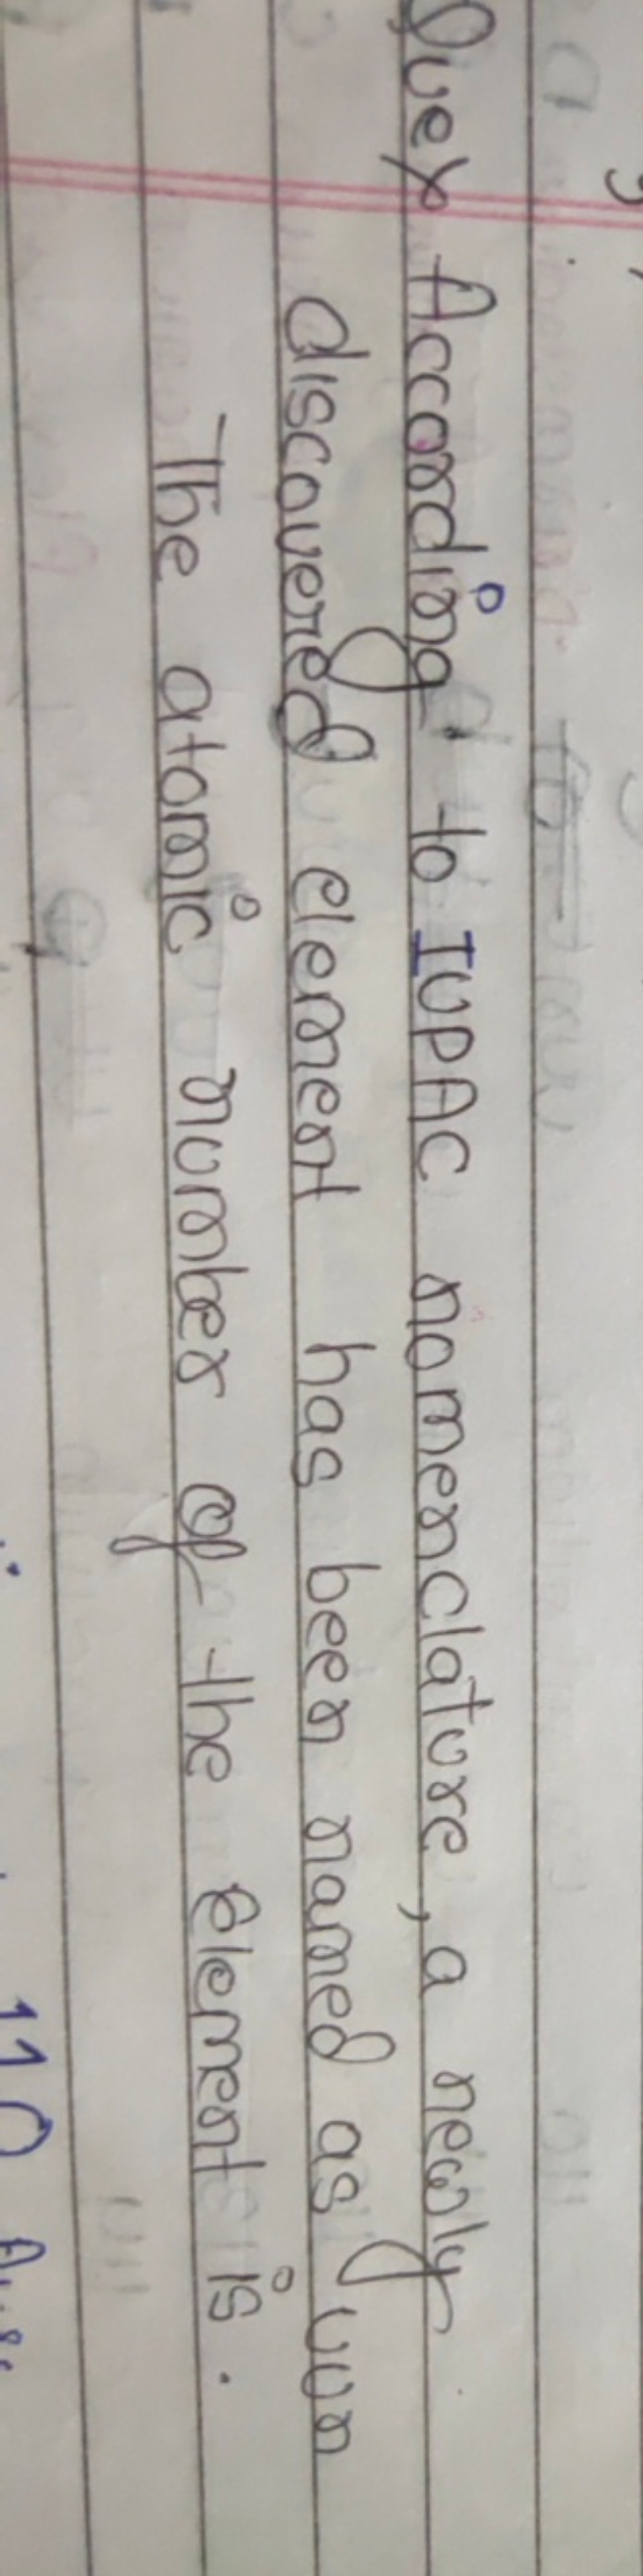 Que» According to IUPAC nomenclature, a newly
discovered element has been named as uun
The atomic number of the element is.
110